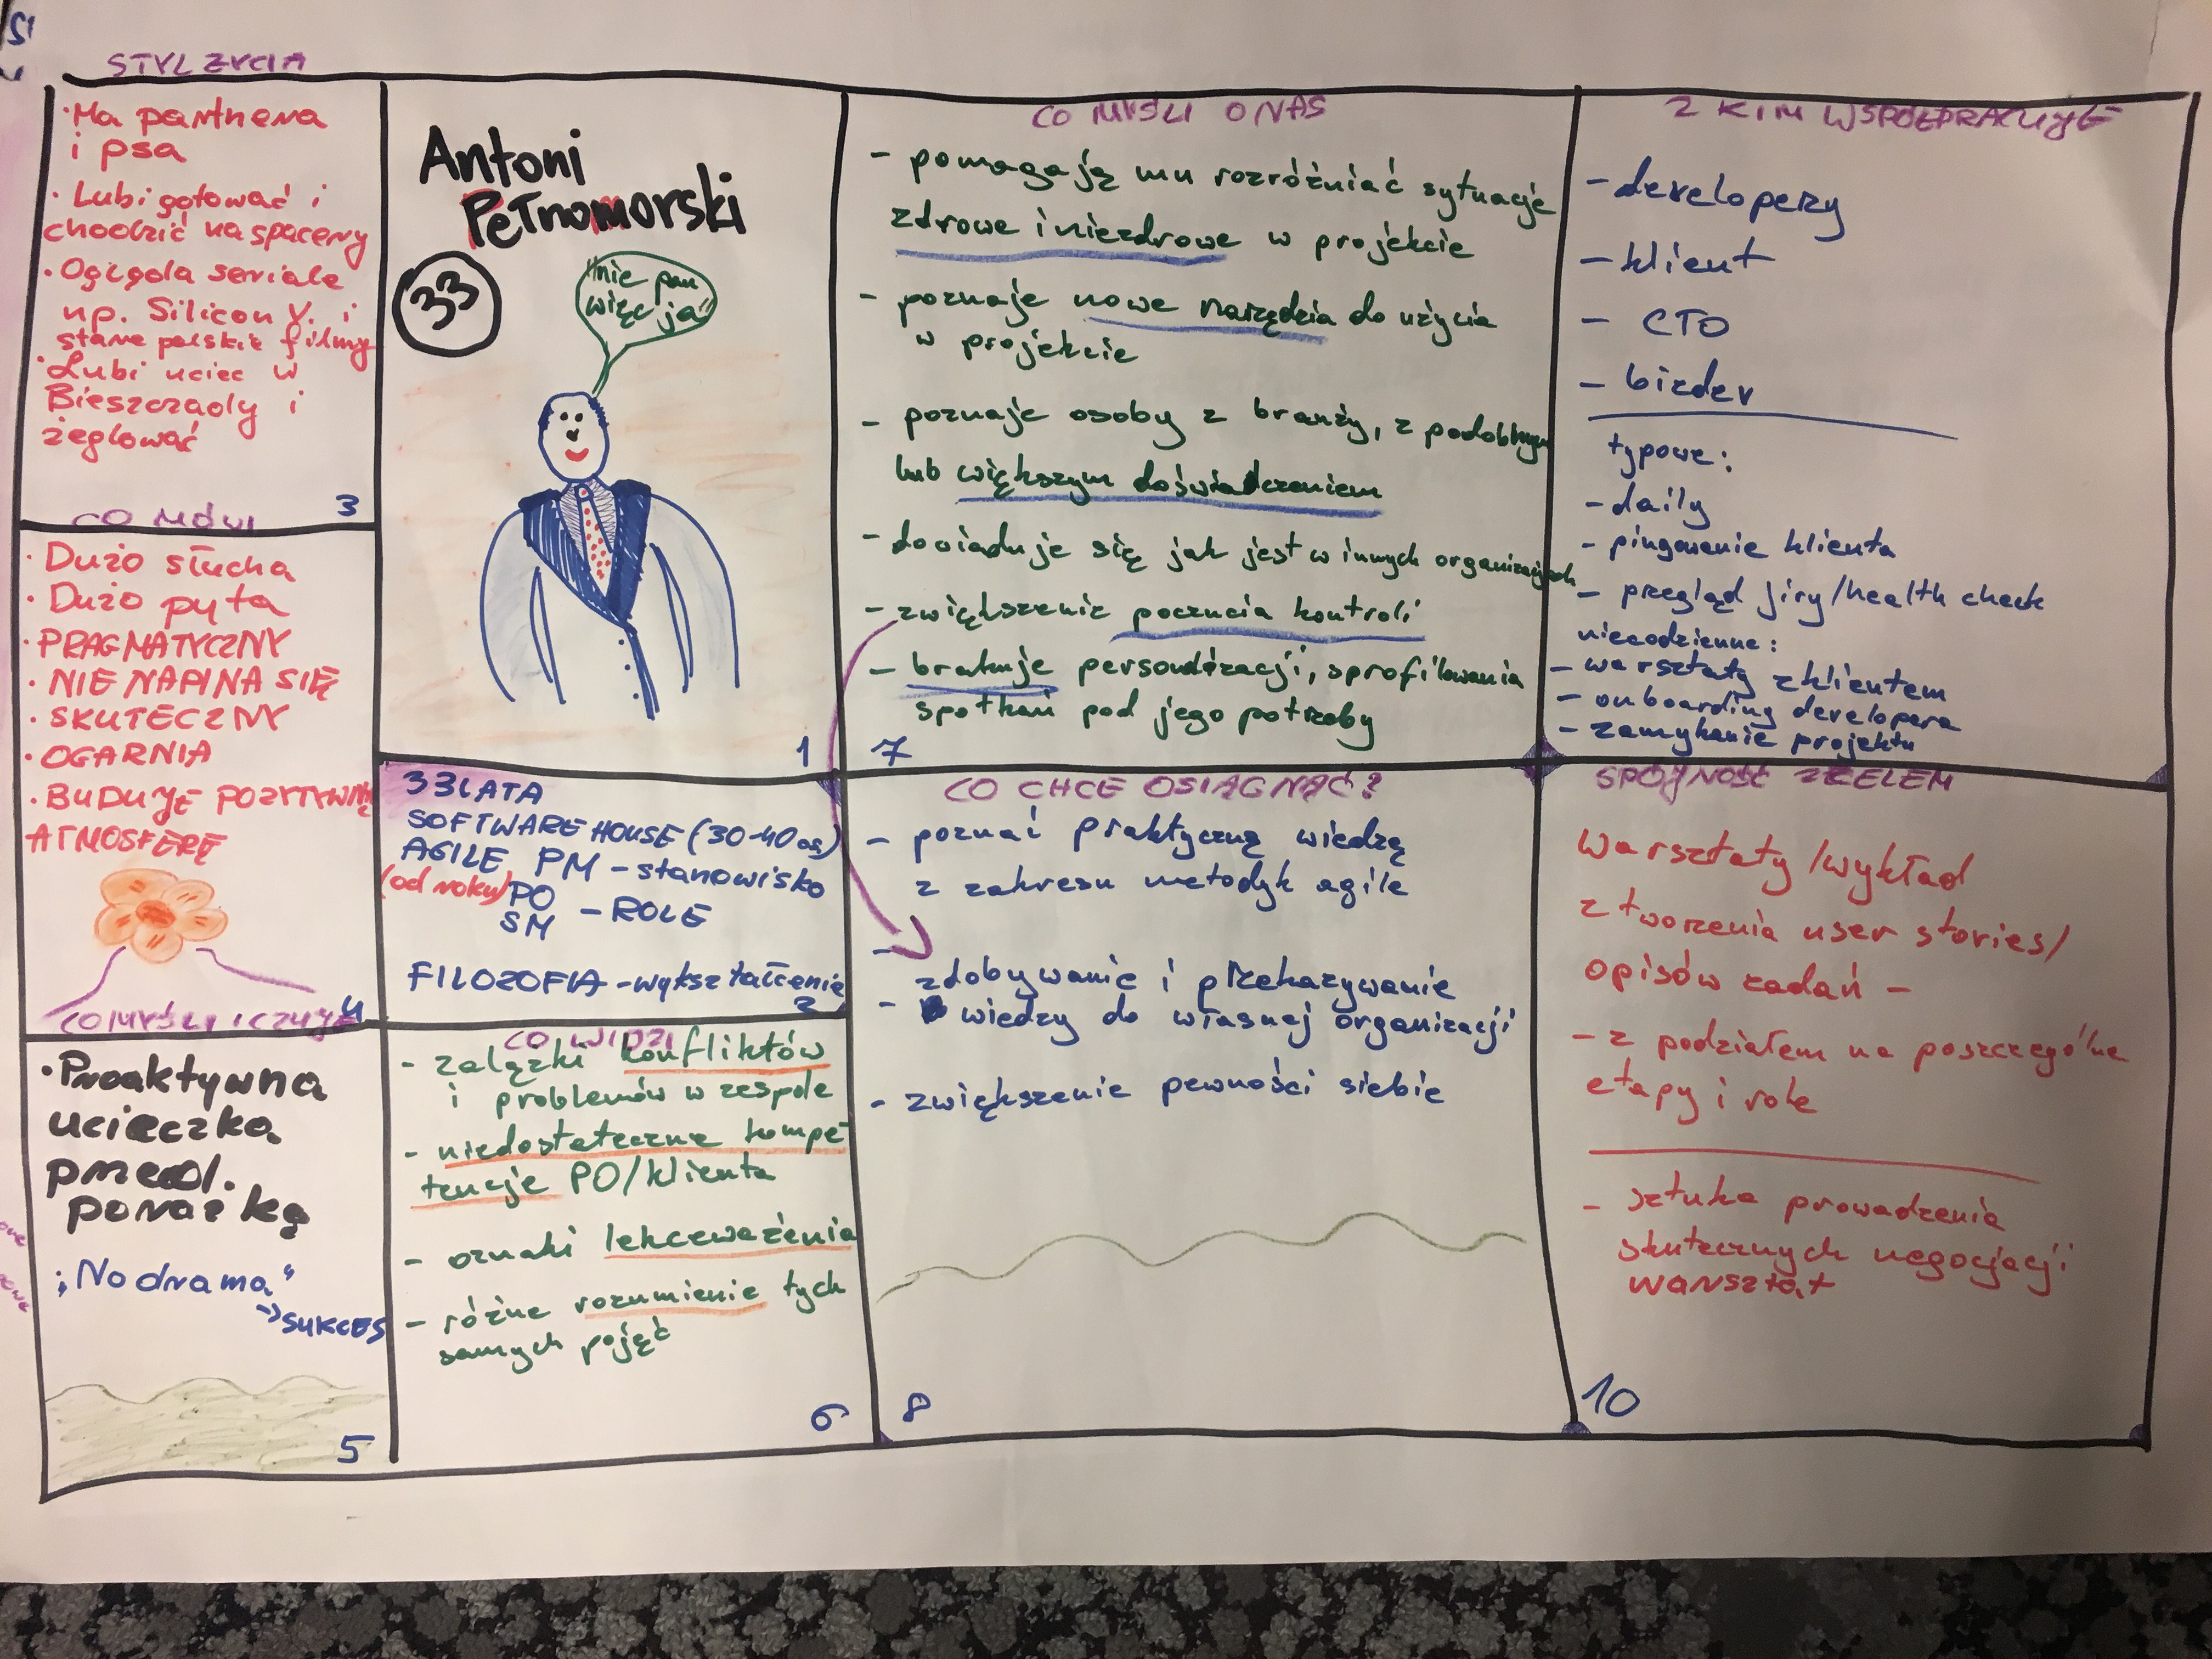 STYL ŻYCIA
· Ma partnera
i psa
· Lubi gotować i
chodzić na spacery
· Ogląda seriale
np. Silicon V. i
stare polskie filmy
· Lubi uciec w
Bieszczady i
żeglować
3
CO MÓWI
· Dużo słucha
· Dużo pyta
PRAGMATYCZNY
· NIE NAPINA SIĘ
· SKUTECZNY
· OGARNIA
· BUDUJE POZYTYWNĄ
ATMOSFERĘ
4
CO MYŚLI I CZUJE
· Proaktywna
ucieczka
przed
porażką
"No drama"
→ SUKCES
5
Antoni
PeTnomorski
33
"nie pan
więc ja"
1
33 LATA
SOFTWARE HOUSE (30-40 os)
AGILE PM - stanowisko
(od roku) PO
SM - ROLE
FILOZOFIA - wykształcenie
2
CO WIDZI
- zalążki konfliktów
i problemów w zespole
- niedostateczne kompe-
tencje PO/klienta
- oznaki lekceważenia
- różne rozumienie tych
samych pojęć
6
CO MYŚLI O NAS
- pomagają mu rozróżniać sytuacje
zdrowe i niezdrowe w projekcie
- poznaje nowe narzędzia do użycia
w projekcie
- poznaje osoby z branży, z podobnym
lub większym doświadczeniem
- dowiaduje się jak jest w innych organizacjach
- zwiększenie poczucia kontroli
- brakuje personalizacji, sprofilowania
spotkań pod jego potrzeby
7
CO CHCE OSIĄGNĄĆ?
- poznać praktyczną wiedzę
z zakresu metodyk agile
-
- zdobywanie i przekazywanie
wiedzy do własnej organizacji
- zwiększenie pewności siebie
8
Z KIM WSPÓŁPRACUJE
- developerzy
- klient
- CTO
- bizdev
typowe:
- daily
- pingowanie klienta
- przegląd jiry/health check
niecodzienne:
- warsztaty z klientem
- onboarding developera
- zamykanie projektu
SPÓJNOŚĆ Z CELEM
Warsztaty/wykład
z tworzenia user stories/
opisów zadań -
- z podziałem na poszczególne
etapy i role
- sztuka prowadzenia
skutecznych negocjacji
warsztat
10